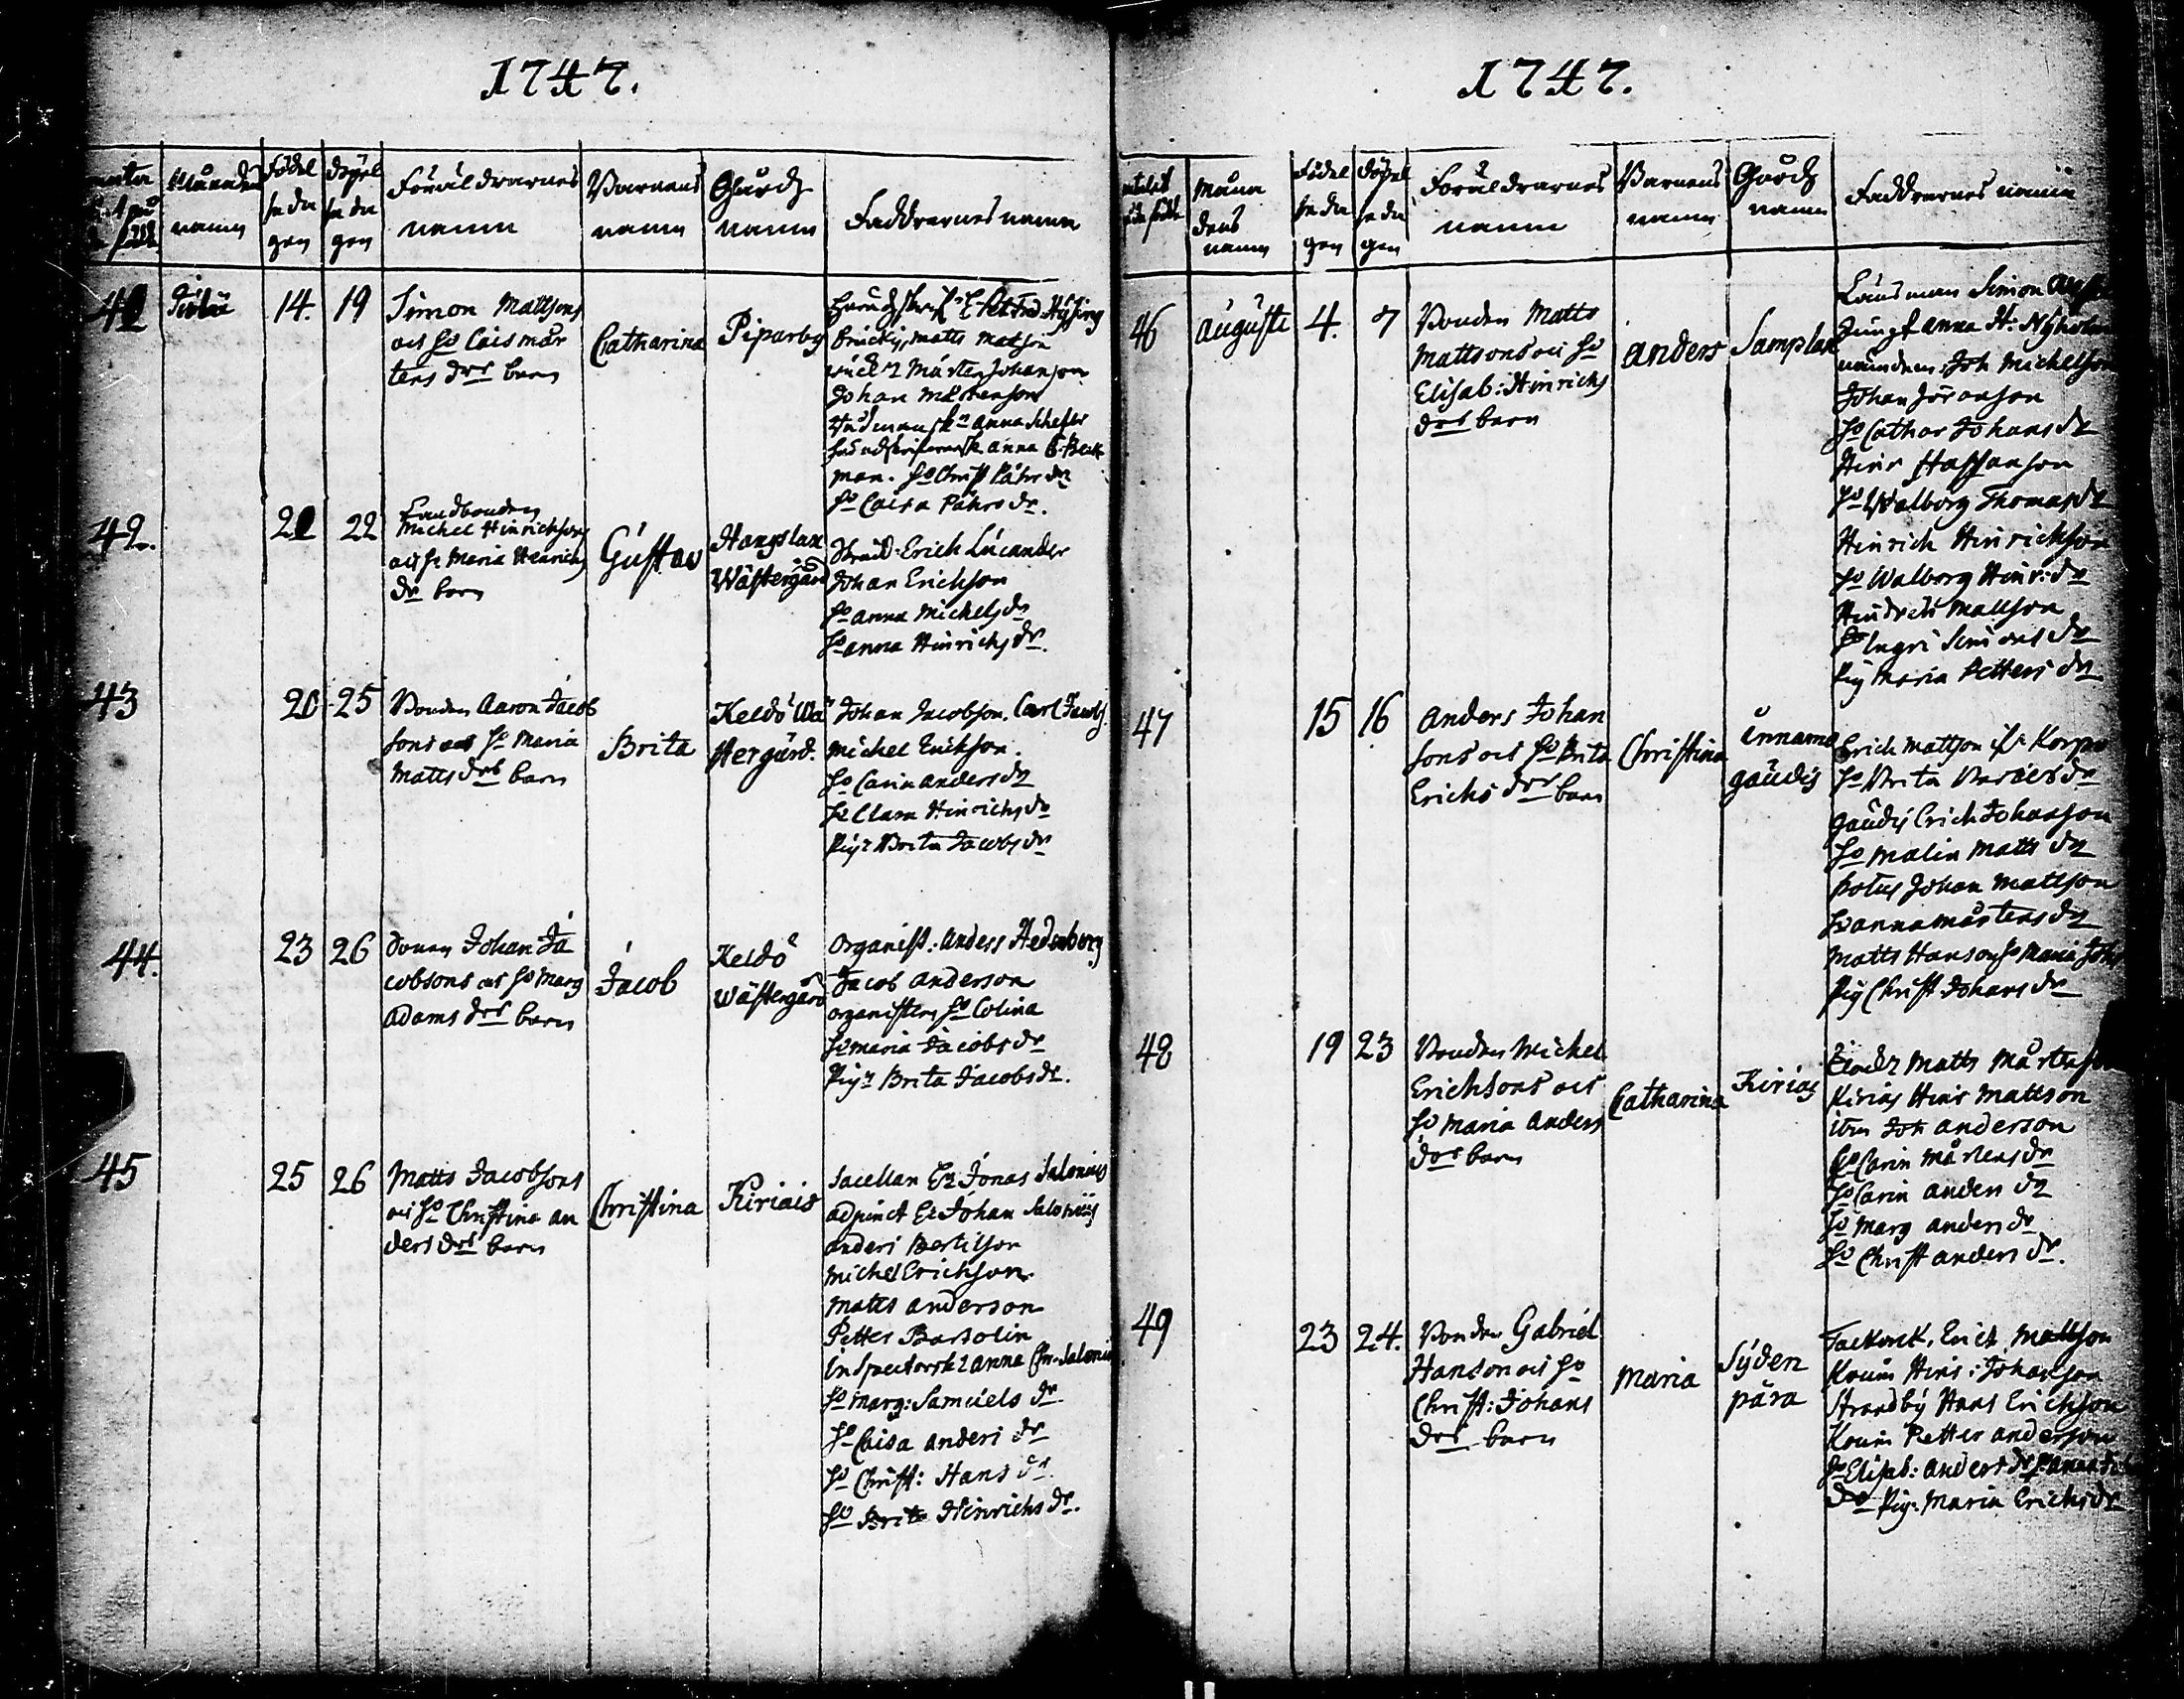 1747.
Månadens
namn
Födel
se da
gen
Döpel
se da
gen
Föräldrarnes
namn
Barnens
namn
Gårdz
namn
Faddrarnes namn
41
Julii
14.
19
Simon Mattsons
och ho Caisa Mår
tens drs barn
Catharina
Piparby
Matts Matson
Mårten Johanson
Johan Mårtenson
Anna Schefer
Anna
man. ho Christ Påhrs dr
ho Caisa Påhrs dr.
42.
21
22
Landbonden
Michel Hinrichsons
och ho Maria Henrichs
dr barn
Gustav
Hangslax
Wästergård
Erich Lucander
Johan Erichson
ho Anna Michels dr
ho Anna Hinrichs dr.
43
20
25
Bonden Aaron Jacob
sons och ho Maria
Matts drs barn
Brita
Keldö Wä
stergård.
Johan Jacobson. Carl Jacobs.
Michel Erichson.
ho Carin Anders dr
ho Clara Hinrichs dr
Pig: Brita Jacobs dr
44.
23
26
Johan Ja
cobsons och ho Marg
Adams drs barn
Jacob
Keldö
Wästergård
Organist: Anders Hedenberg
Jacob Anderson
organistens ho Colina
ho Maria Jacobs dr
Pig: Brita Jacobs dr.
45
25
26
Matts Jacobsons
och ho Christina An
ders drs barn
Christina
Kiriais
Sacellan Er Jonas Salonius
adjunct Er Johan Salonius
Anders Bertilson
Michel Erichson.
Matts Anderson
Petter Bartolin
Inspectorsk: Anna Chr. Saloni
ho Marg: Samuels dr.
ho Caisa Anders dr
ho Christ: Hans dr.
ho Brita Hinrichs dr.
1747.
Måna
dens
namn
Födel
se da
gen
Döpel
se da
gen
Föräldrarnes
namn
Barnens
namn
Gårdz
namn
Faddrarnes namn
46
Augusti
4.
7
Bonden Matts
Mattsons och ho
Elisab: Hinrichs
drs barn
Anders
Samplax
Länsman Simon
Jungf Anna H: Nyholm
Joh Michelson
Johan Jöranson
ho Cathar Johans dr
Hinr Staffanson
ho Walborg Thomas dr
Hinrich Hinrichson
ho Walborg Hinr: dr
Hindrich Mattson
ho Ingri Simons dr
Pig Maria Petters dr
47
15
16
Anders Johan
sons och ho Brita
Erichs drs barn
Christina
Ånnamo
Gaudis
Erich Mattson Korpo
ho Brita
Gaudis Erich Johanson
ho Malin Matts dr
Johan Mattson
ho Anna Mårtens dr
Matts Hanson ho Maria Joh
Pig Christ Johans dr
48
19
23
Bonden Michel
Erichsons och
ho Maria Anders
drs barn
Catharina
Kirias
Matts Mårtenson
Kirias Hinr Mattson
item Joh Anderson
ho Carin Mårtens dr
ho Carin Anders dr
ho Marg Anders dr
ho Christ Anders dr.
49
23
24.
Bonden Gabriel
Hanson och ho
Christ: Johans
drs barn
Maria
Syden
pära
Erich Mattson
Hinr: Johanson
Strandby Hans Erichson
Petter Anderson
ho Elisab: Anders dr ho Anna
dr Pig: Maria Erichs dr